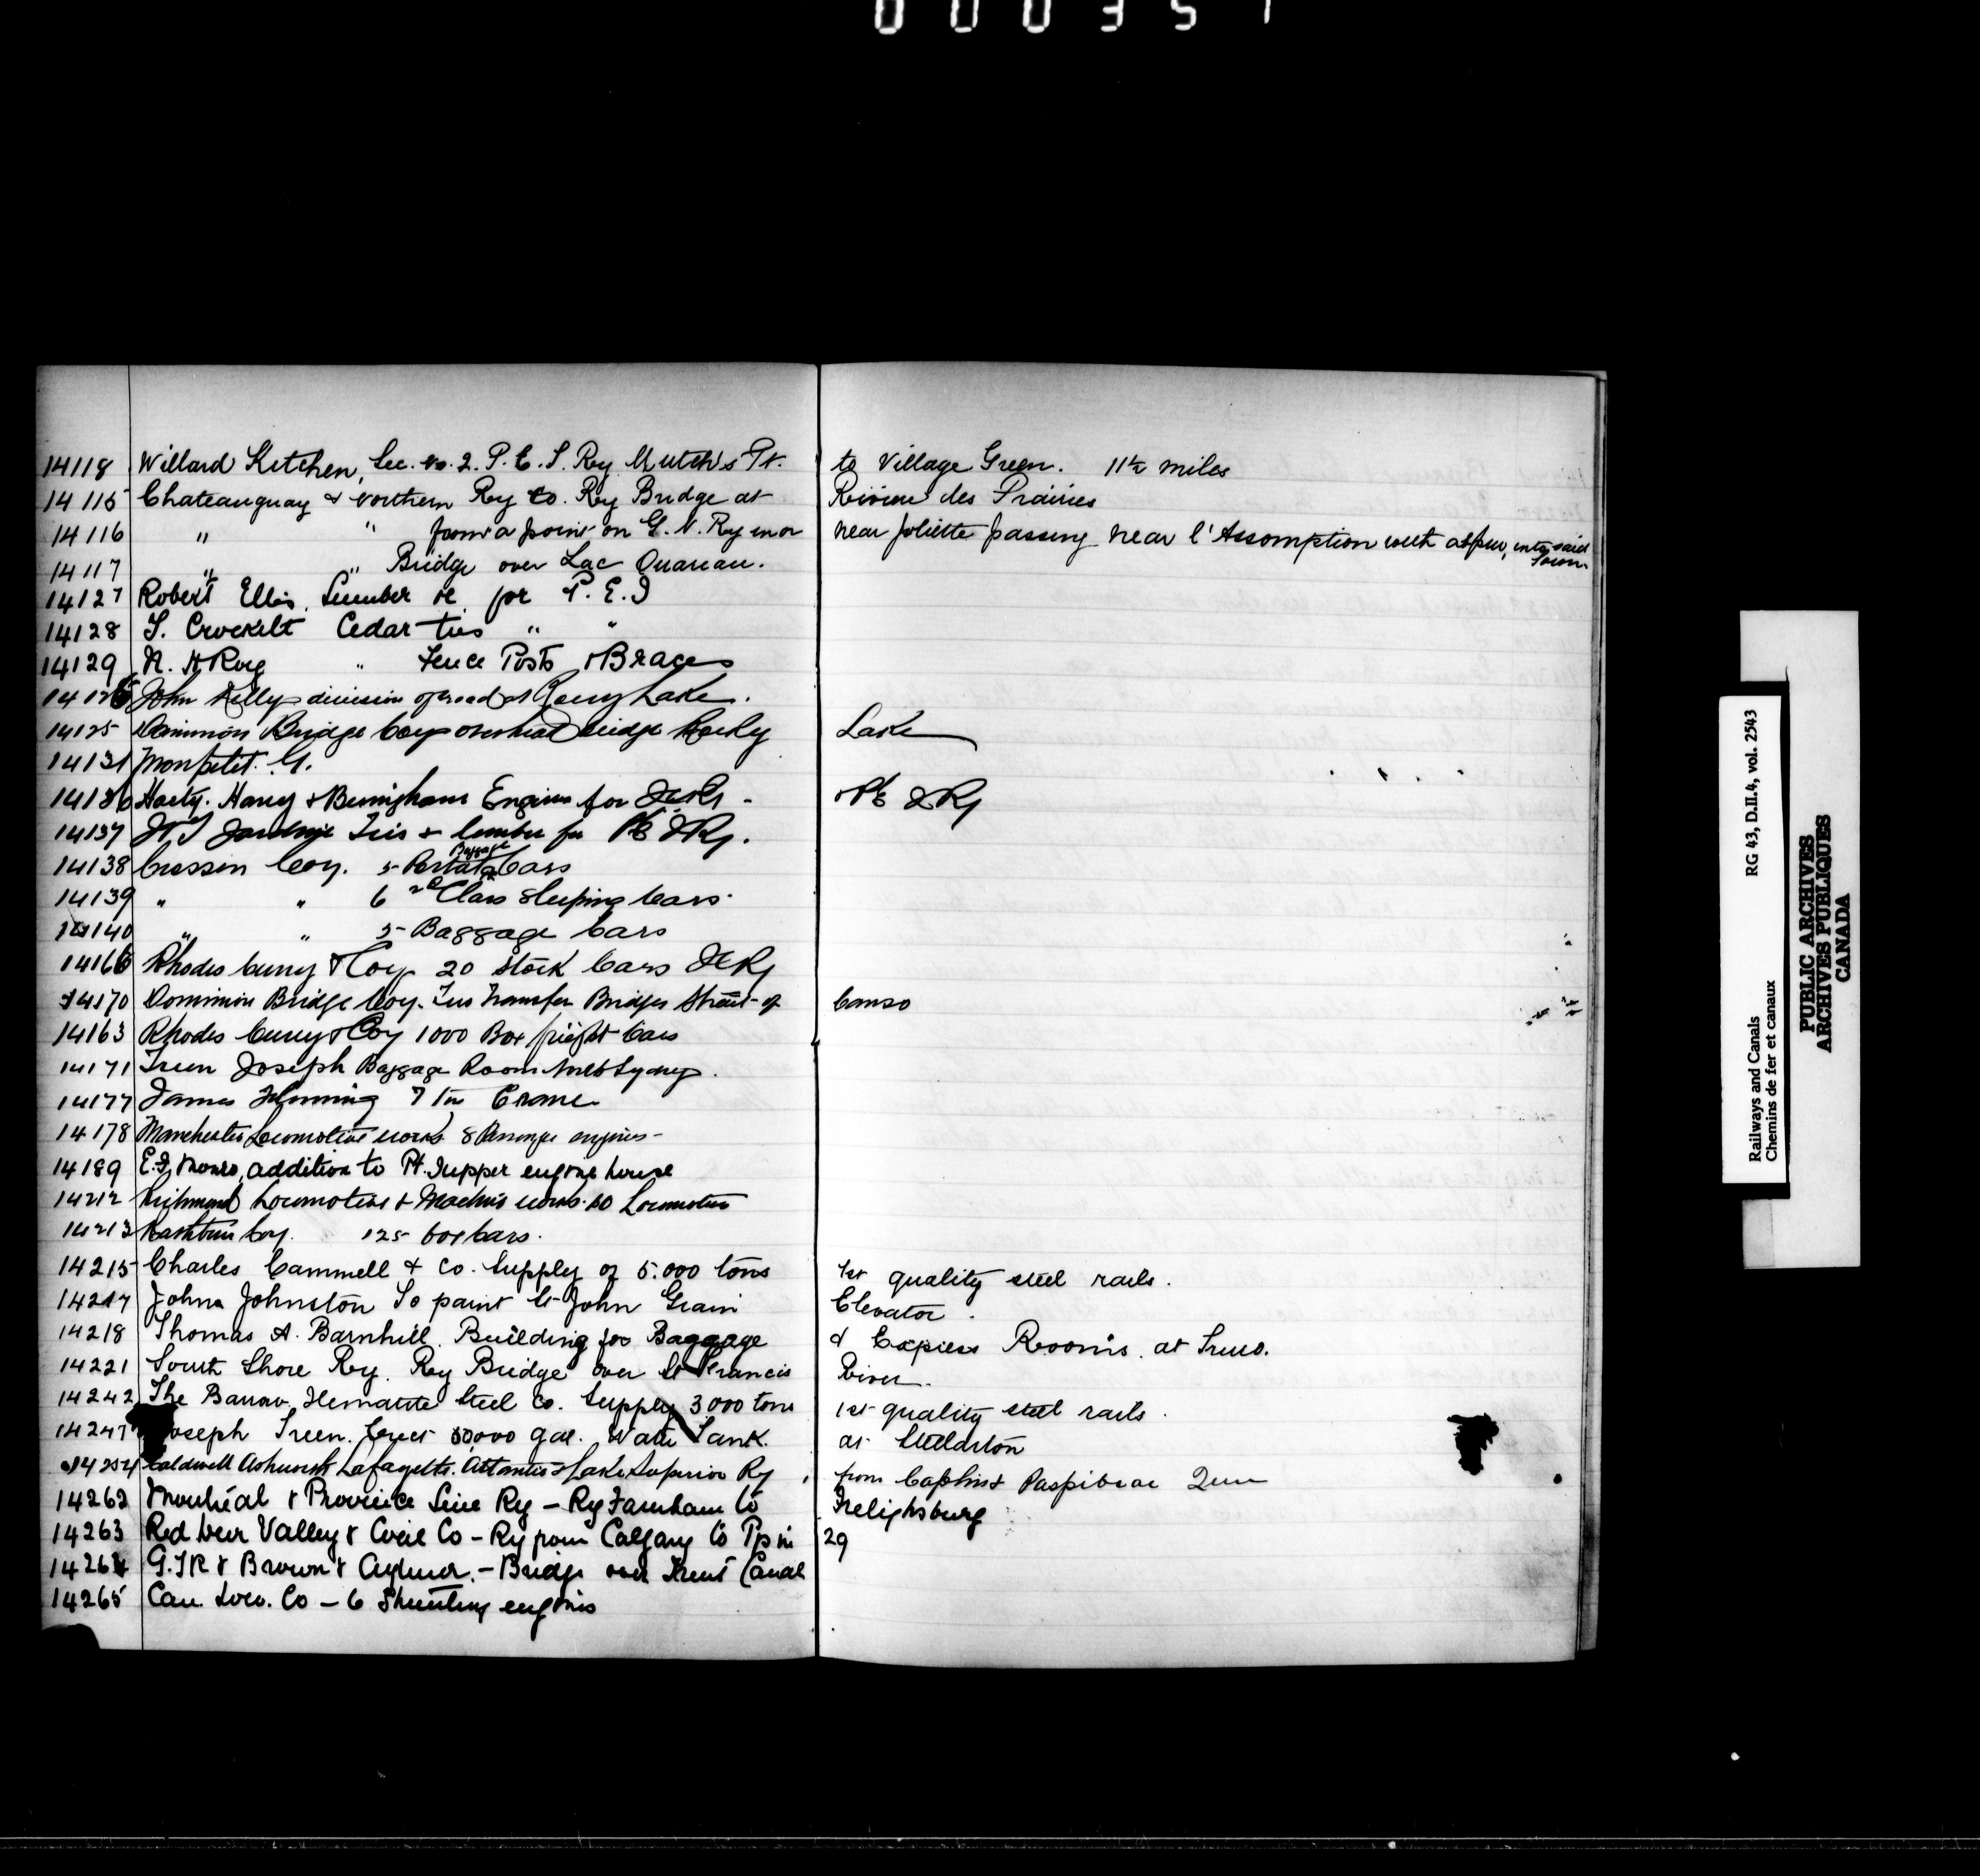 000357
14118 Willard Kitchen, Sec. No. 2. P. E. I. Ry Mutch's Pt. to Village Green. 11½ miles
14115 Chateauguay & Northern Ry Co. Ry Bridge at Rivière des Prairies
14116 " " from a point on G. N. Ry in or near Joliette passing near l'Assomption with a spur into said Town
14117 " " Bridge over Lac Ouareau.
14127 Robert Ellis Lumber &c for P. E. I
14128 S. Crockett Cedar ties " "
14129 N. A Roy " Fence Posts & Braces
14126 John Kelly division of road at Rocky Lake.
14125 Dominion Bridge Coy overhead bridge Rocky Lake
14131 Monpetit. G.
14136 Harty. Harry & Bermingham Engines for ICRy - & PE I Ry
14137 Ties & lumber for PE I Ry.
14138 Crossen Coy. 5 Postal & Baggage Cars
14139 " " 6 2d Class Sleeping Cars.
14140 " " 5 Baggage Cars
14166 Rhodes Curry & Coy 20 Stock Cars ICRy
14170 Dominion Bridge Coy. Two Transfer Bridges Strait of Canso
14163 Rhodes Curry & Coy 1000 Box freight Cars
14171 Treen Joseph Baggage Room North Sydney.
14177 James Fleming 7 Ton Crane
14178 Manchester Locomotive works 8 Passenger engines -
14189 E. F. Monro, addition to Pt. Tupper engine house
14212 Richmond Locomotive & Machine works. 10 Locomotives
14213 Rathbun Coy. 125 box Cars.
14215 Charles Cammell & Co. Supply of 5.000 tons 1st quality steel rails.
14217 John Johnston To paint St John Grain Elevator.
14218 Thomas A. Barnhill. Building for Baggage & Express Rooms. at Truro.
14221 South Shore Ry. Ry Bridge over St Francis River.
14242 The Barrow Hematite Steel Co. Supply 3000 tons 1st quality steel rails.
14247 Joseph Treen. Erect 50,000 gal. Water Tank. at Stellarton
14254 Caldwell Ashworth Lafayette. Atlantic & Lake Superior Ry, from Caplin & Paspebiac
14262 Montréal & Province Line Ry - Ry Farnham to Frelighsburg
14263 Red Deer Valley & Coal Co - Ry from Calgary to Tp in 29
14264 G.T.R & Brown & Aylmer. - Bridge over Trent Canal
14265 Can. Loco. Co - 6 Shunting engines
RG 43, D.II.4, vol. 2543
Railways and Canals
Chemins de fer et canaux
PUBLIC ARCHIVES
ARCHIVES PUBLIQUES
CANADA